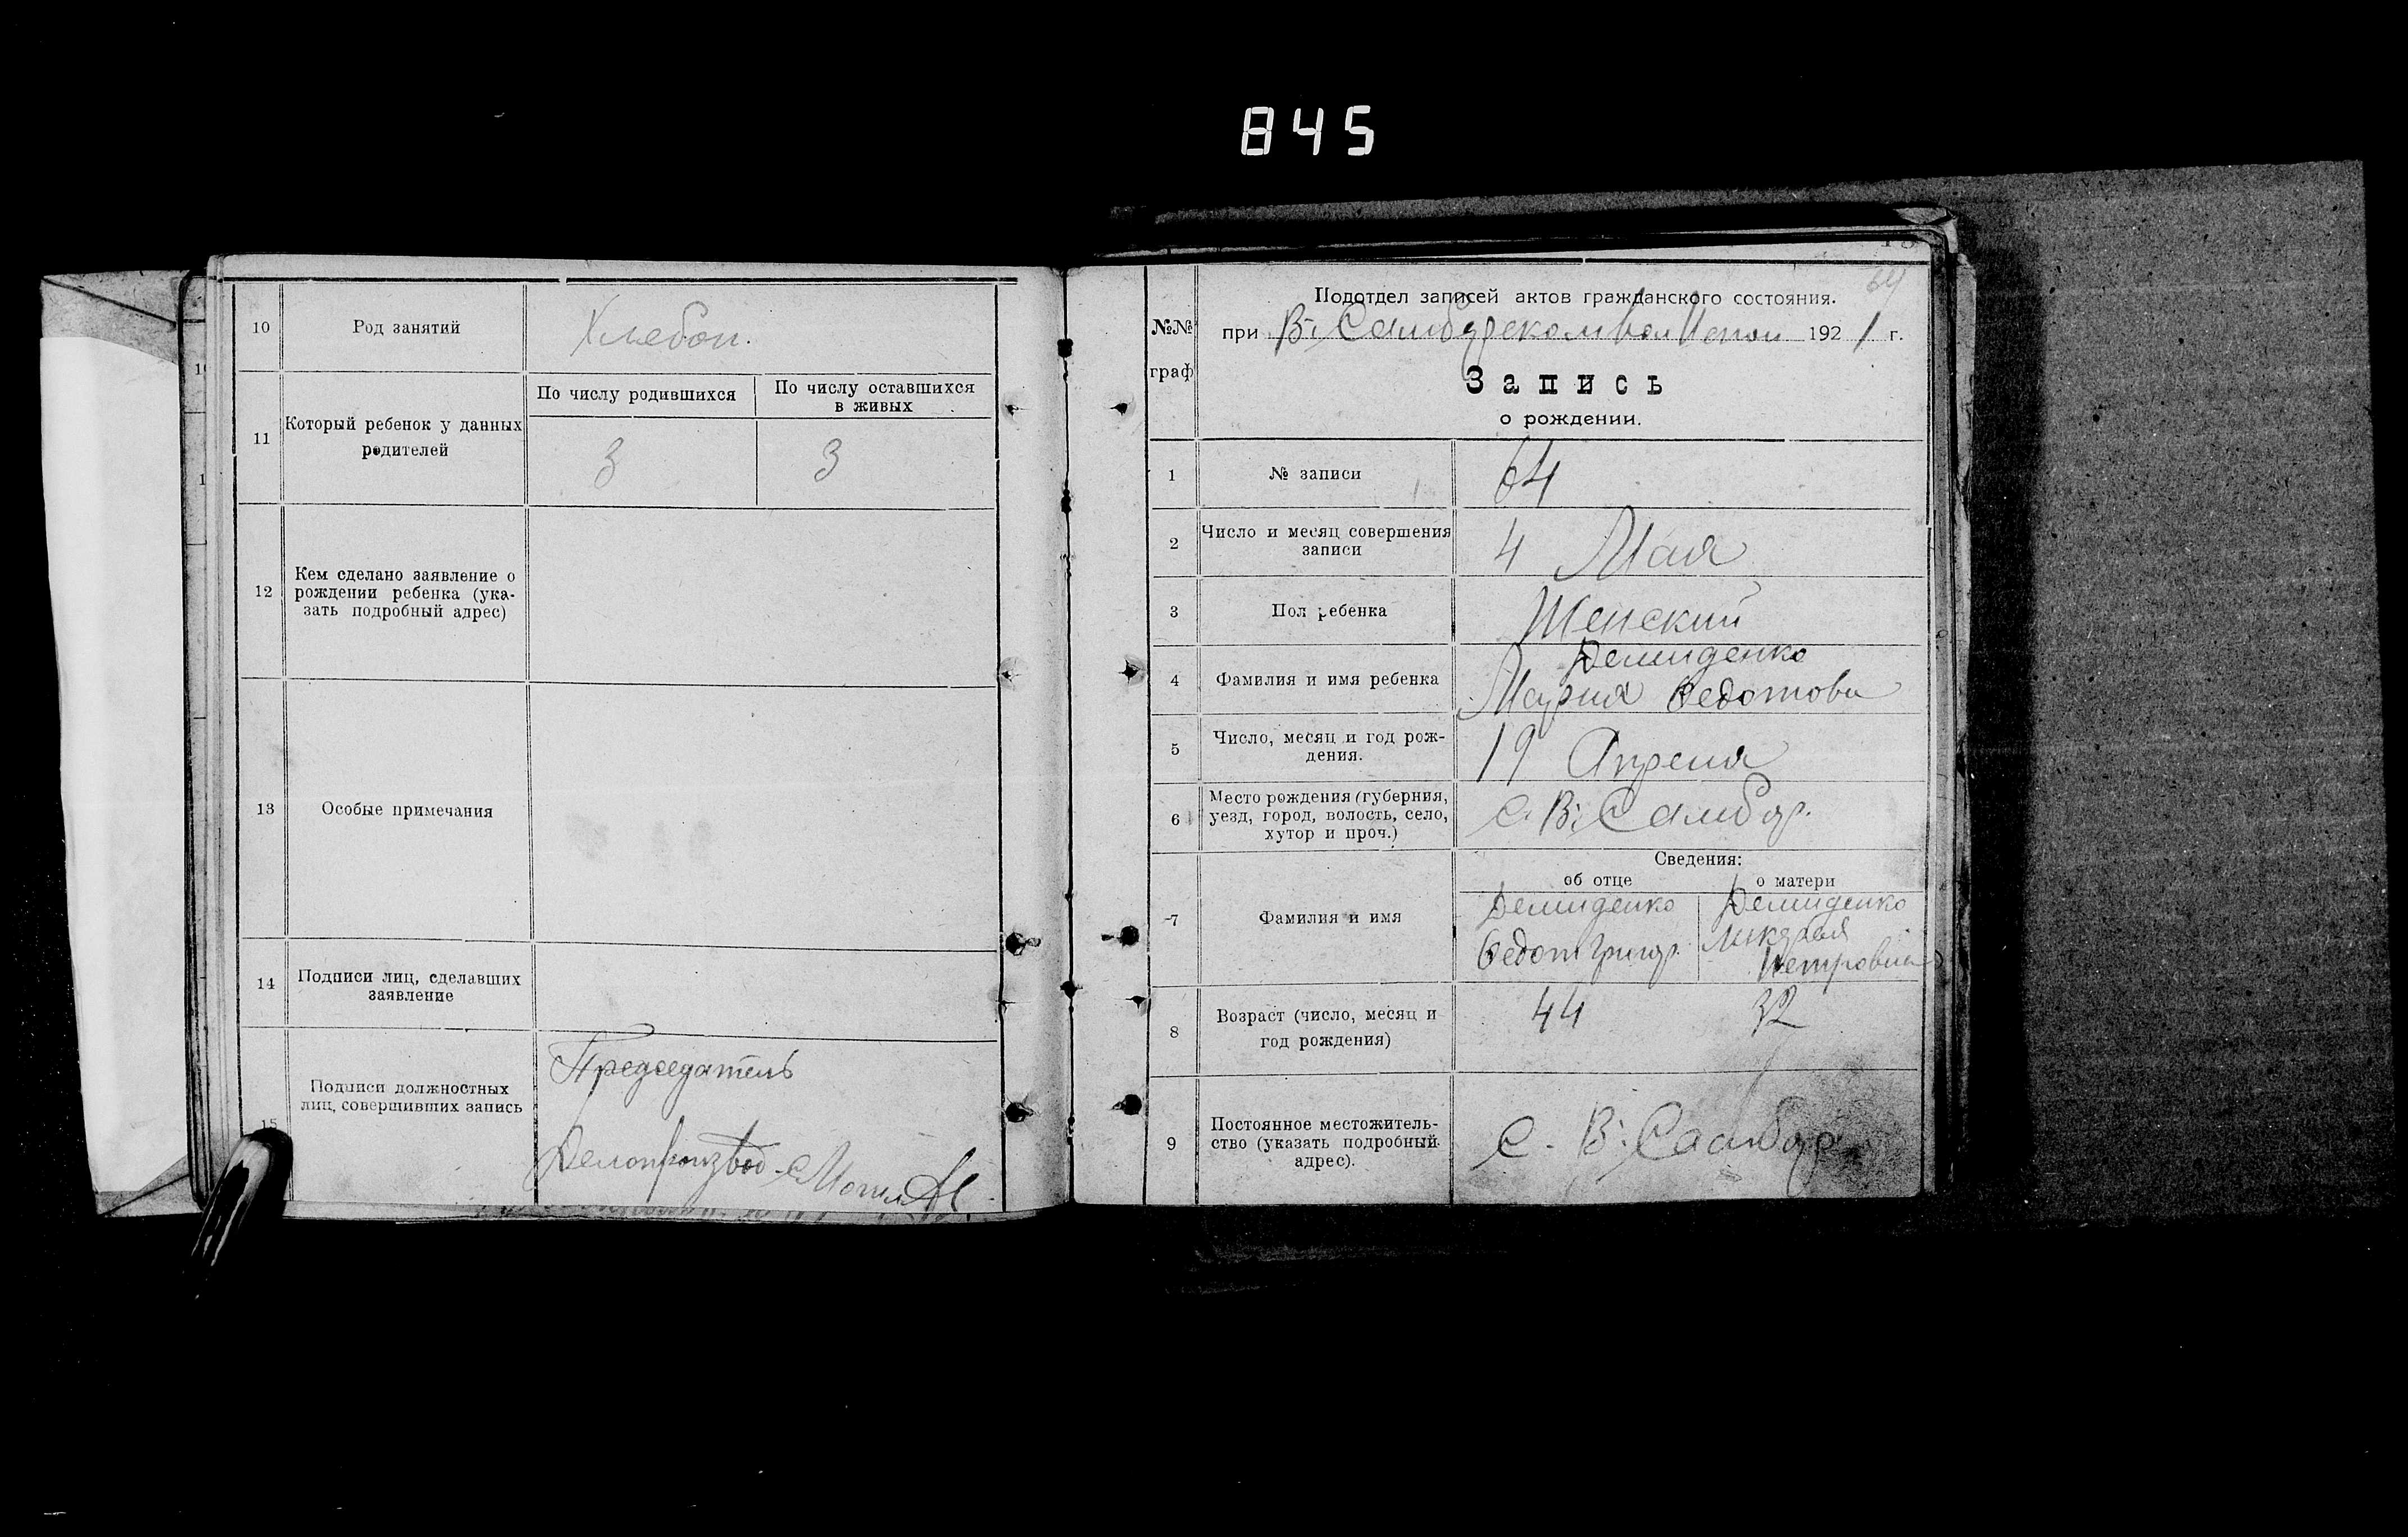 845
10
Род занятий
Хлебоп.
11
Который ребенок у данных
родителей
По числу родившихся
По числу оставшихся
в живых
3
3
12
Кем сделано заявление о
рождении ребенка (ука-
зать подробный адрес)
13
Особые примечания
14
Подписи лиц, сделавших
заявление
15
Подписи должностных
лиц, совершивших запись
Председатель
Делопроизвод.
64
№№
граф
Подотдел записей актов гражданского состояния.
при В. Самбор 1921 г.
Запись
о рождении.
1
№ записи
64
2
Число и месяц совершения
записи
4 Мая
3
Пол ребенка
Женский
4
Фамилия и имя ребенка
Демиденко
Мария Федотовн
5
Число, месяц и год рож-
дения.
19 Апреля
6
Место рождения (губерния,
уезд, город, волость, село,
хутор и проч.)
С. В. Самбор.
Сведения:
об отце
о матери
7
Фамилия и имя
Демиденко
Федот Григор.
Демиденко
Петровна
8
Возраст (число, месяц и
год рождения)
44
32
9
Постоянное местожитель-
ство (указать подробный
адрес).
С. В. Самбор